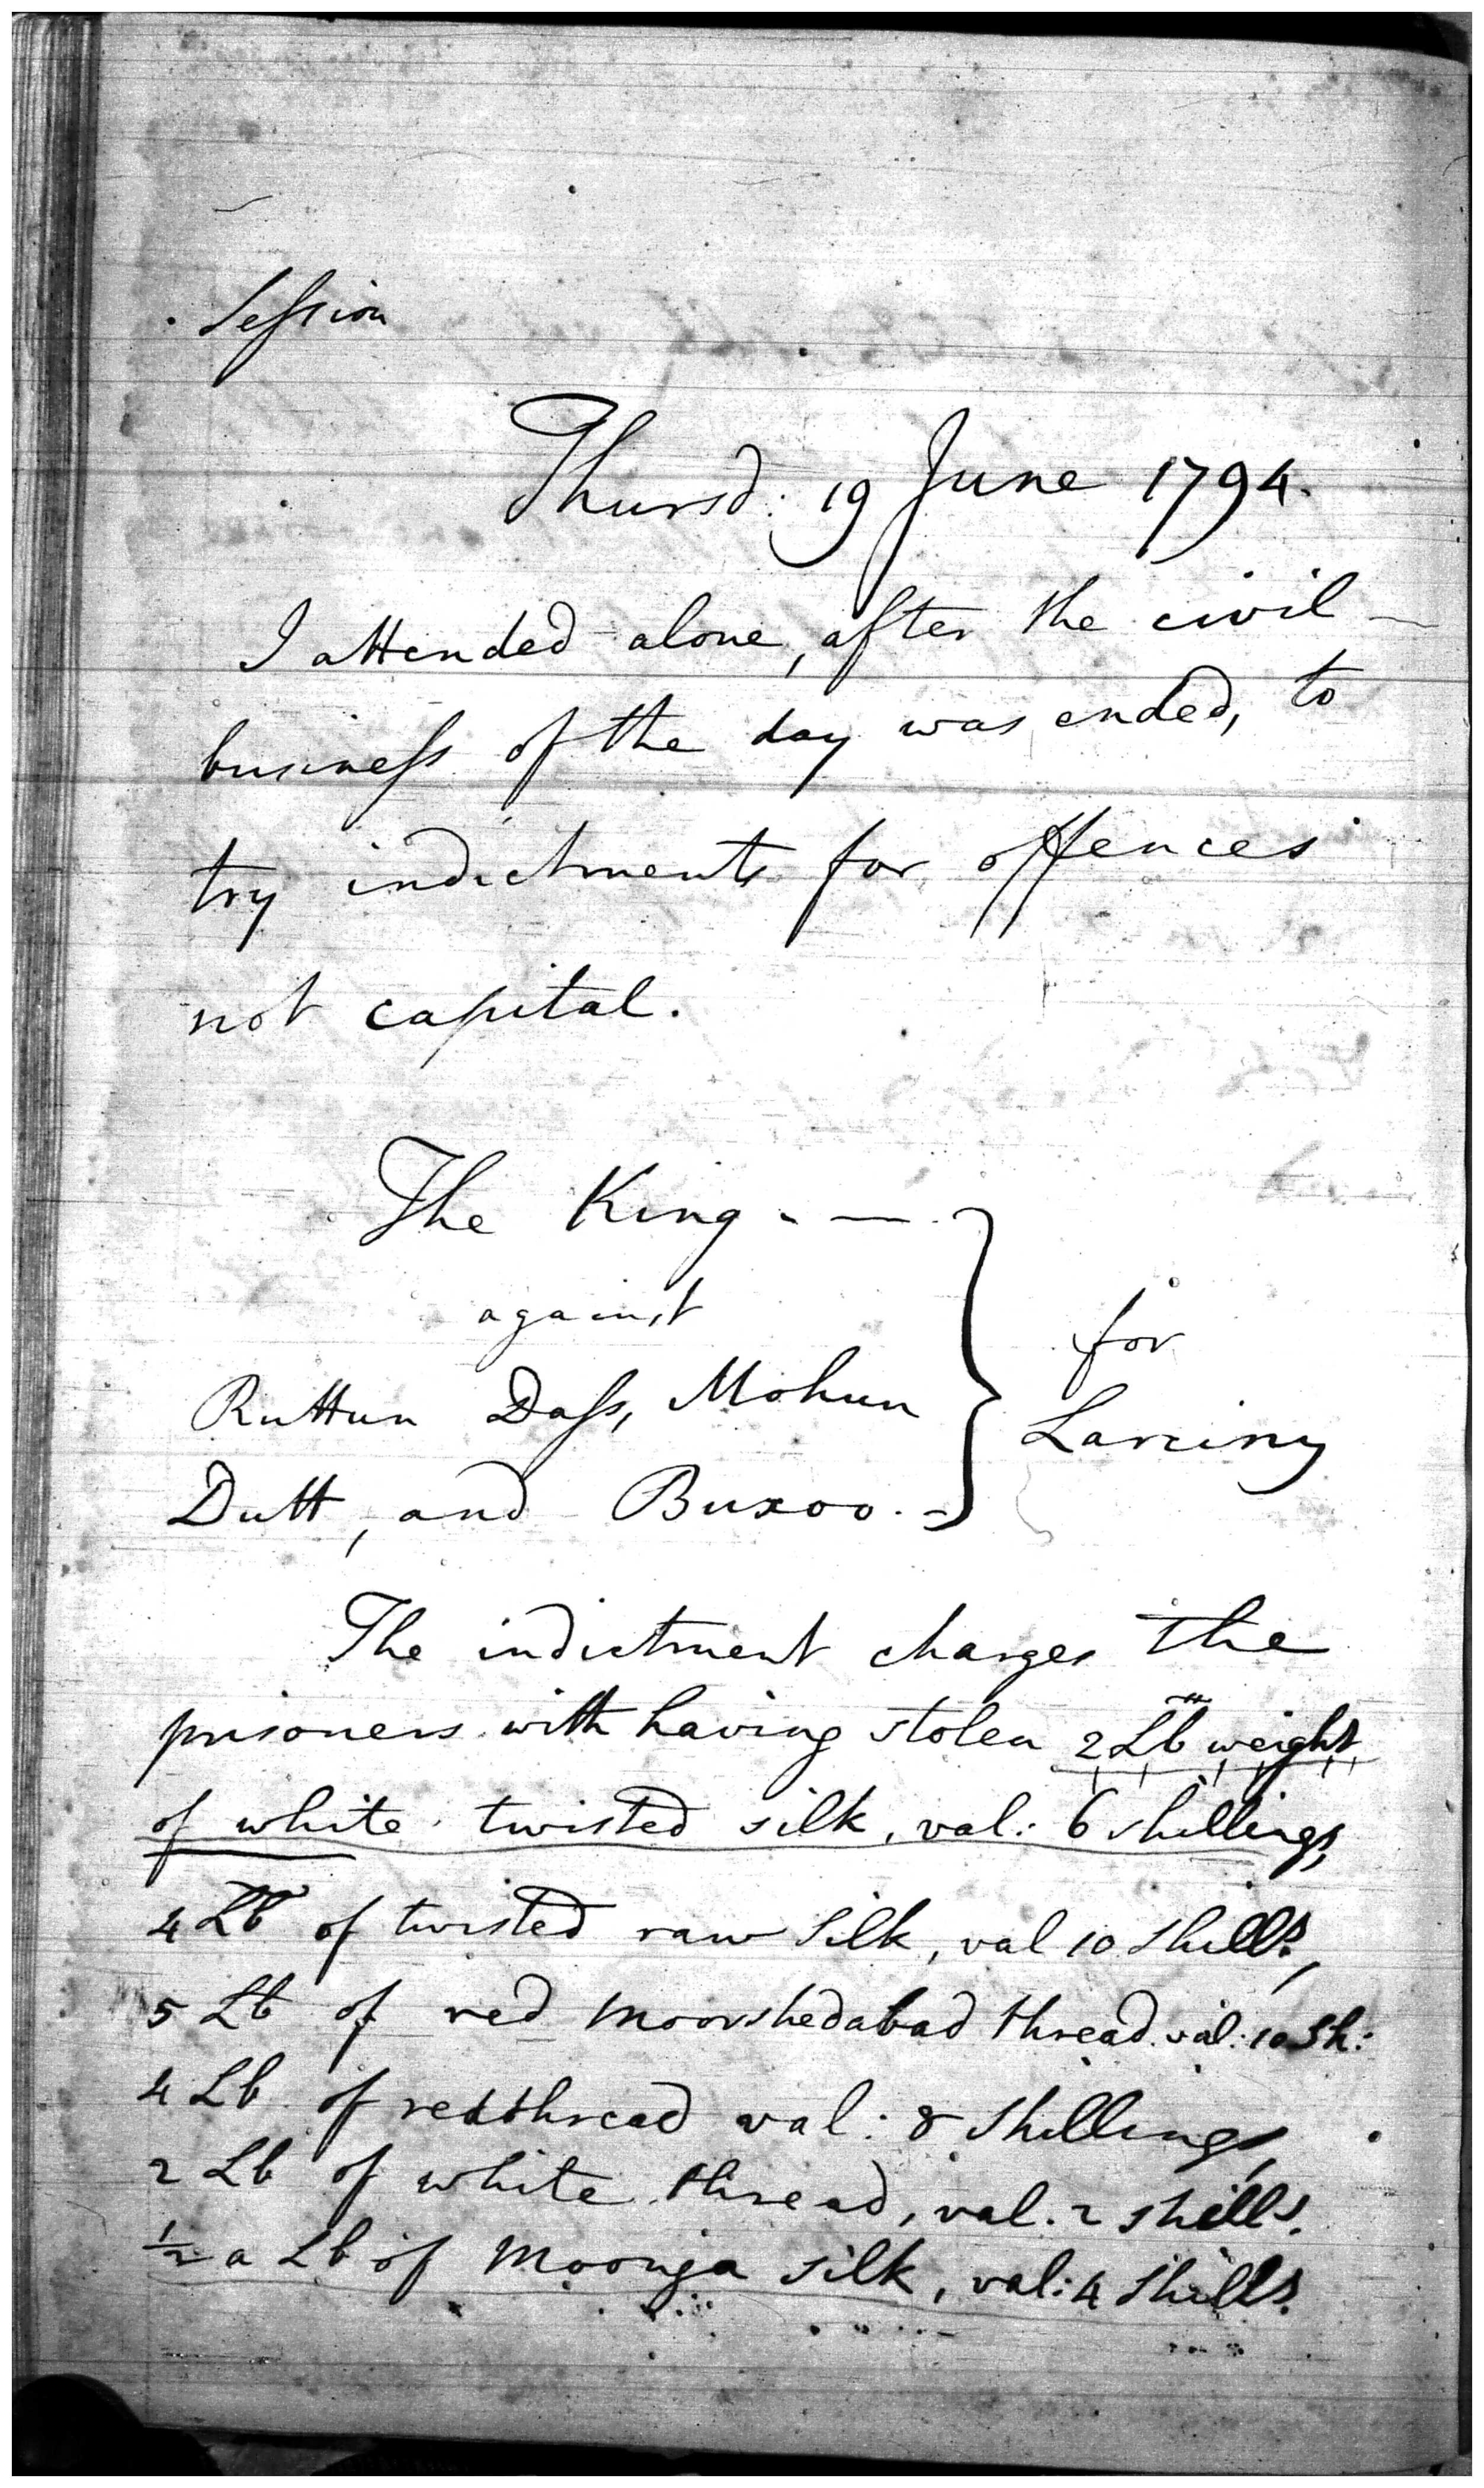 Session
Thursd: 19 June 1794.
I attended alone, after the civil —
business of the day was ended, to
try indictments for offences
not capital.
The King. —
against
Ruttun Dass, Mohun
Dutt, and Buxoo. =
for
Larciny
The indictment charges the
prisoners with having stolen 2 Lb weight
of white twisted silk, val: 6 shillings,
4 Lb of twisted raw Silk, val 10 Shills,
5 Lb of red Moorshedabad thread val: 10 Sh:
4 Lb of red thread val: 8 Shillings,
2 Lb of white thread, val. 2 shills.
1/2 a Lb of Moonga silk, val: 4 Shills.